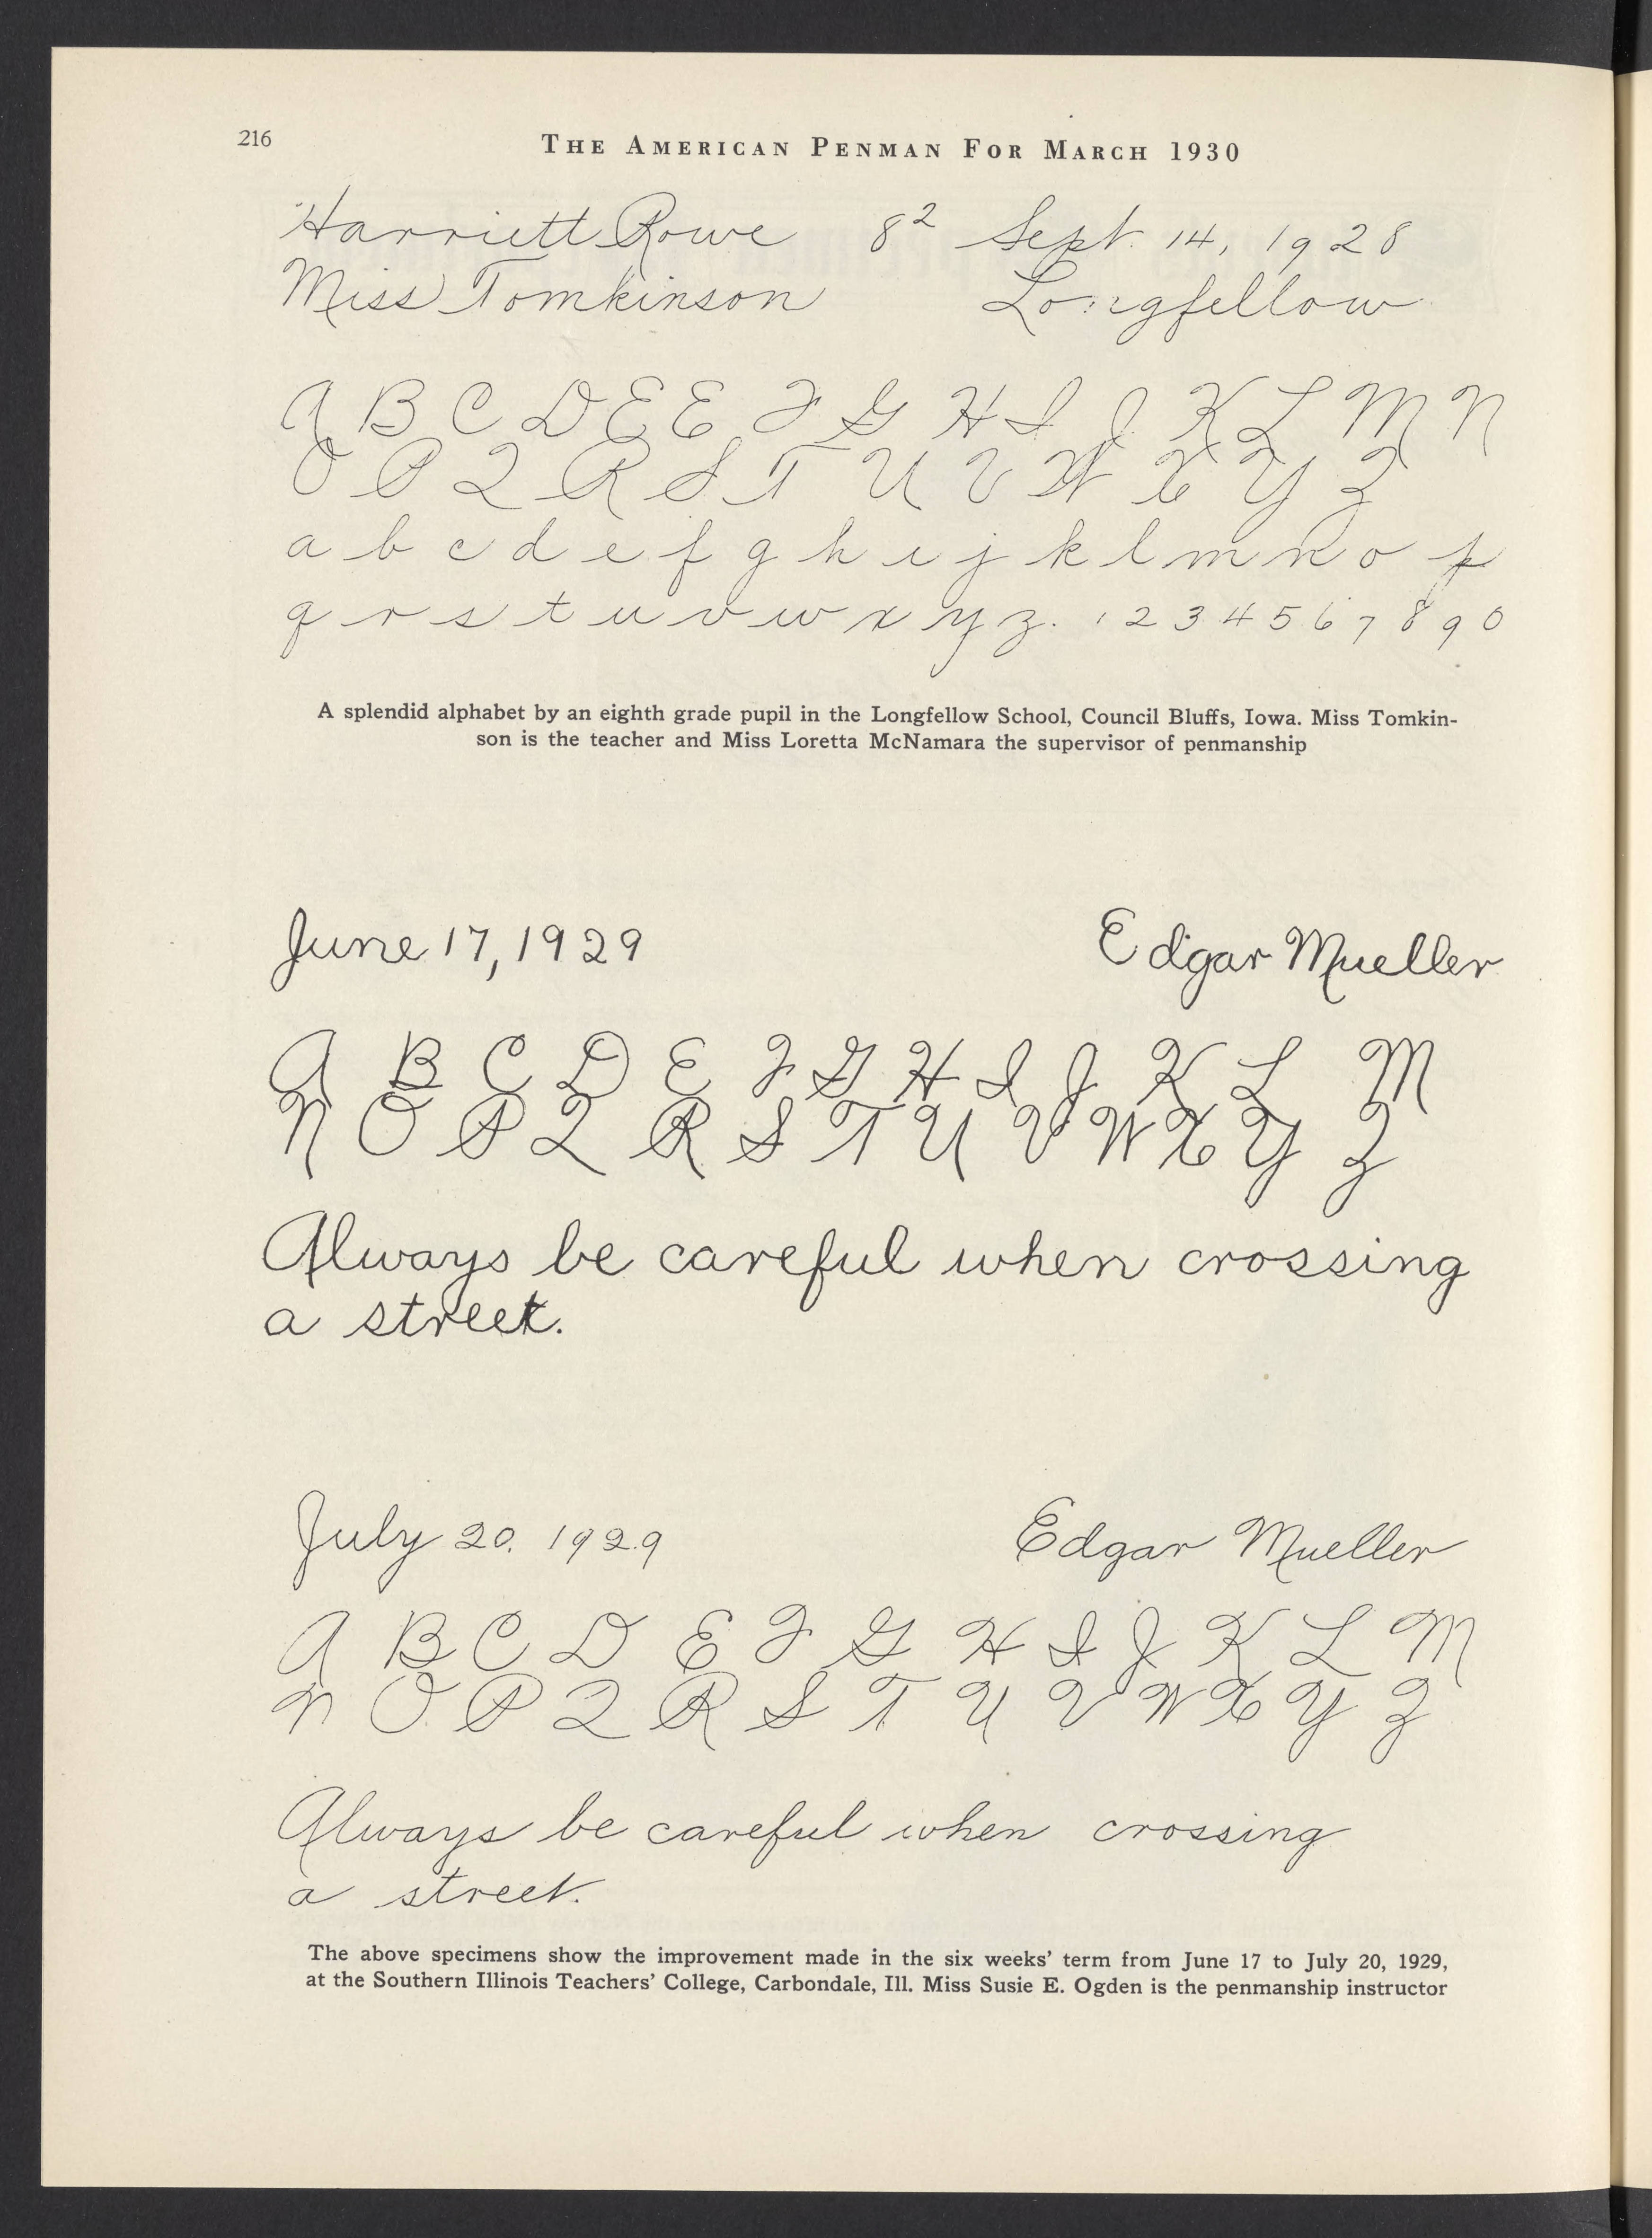 216
THE AMERICAN PENMAN FOR MARCH 1930
Harriett Rowe 8² Sept. 14, 1928
Miss Tomkinson Longfellow
A B C D E E F G H I J K L M N
O P Q R S T U V W X Y Z
a b c d e f g h i j k l m n o p
q r s t u v w x y z. 1 2 3 4 5 6 7 8 9 0
A splendid alphabet by an eighth grade pupil in the Longfellow School, Council Bluffs, Iowa. Miss Tomkin-
son is the teacher and Miss Loretta McNamara the supervisor of penmanship
June 17, 1929 Edgar Mueller
A B C D E F G H I J K L M
N O P Q R S T U V W X Y Z
Always be careful when crossing
a street.
July 20. 1929 Edgar Mueller
A B C D E F G H I J K L M
N O P Q R S T U V W X Y Z
Always be careful when crossing
a street.
The above specimens show the improvement made in the six weeks' term from June 17 to July 20, 1929,
at the Southern Illinois Teachers' College, Carbondale, Ill. Miss Susie E. Ogden is the penmanship instructor